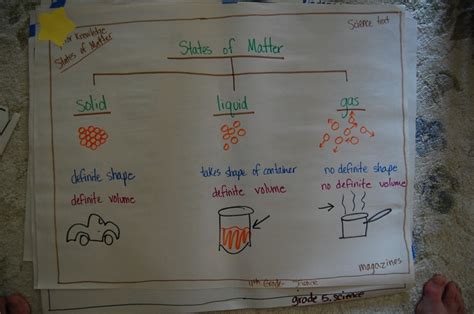 Prior Knowledge
States of Matter
Science text
States of Matter
solid
liquid
gas
definite shape
definite volume
takes shape of container
definite volume
no definite shape
no definite volume
magazines
4th Grade Science
grade 5, science